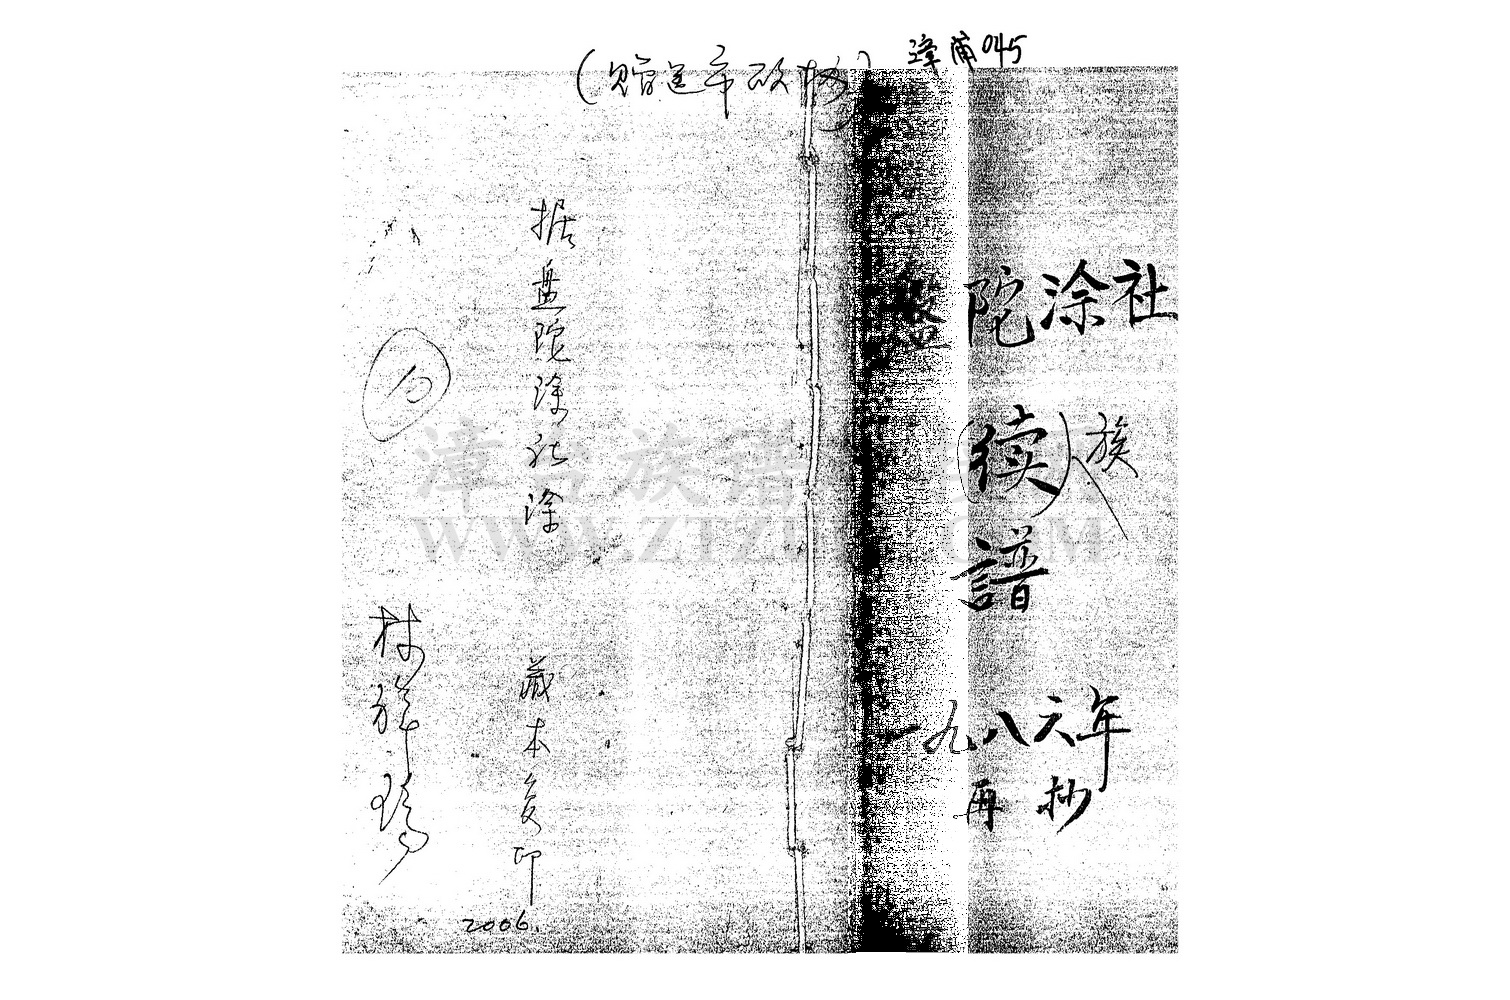 漳浦045
(赠送市政协)
盘陀涂社
(续)族
譜
一九八六年
再抄
据盘陀涂社涂
藏本复印
2006.
林祥瑞
漳台族谱
WWW.ZTZUPU.COM